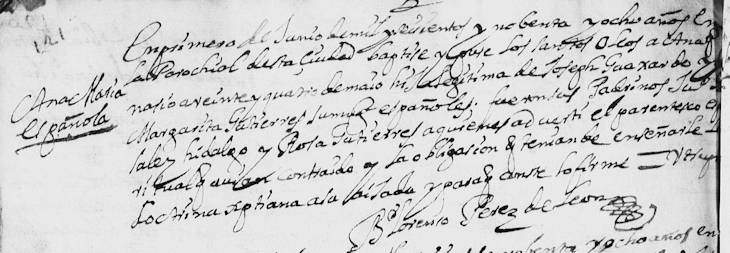 121
Ana Maria
española
En primero de Junio de mil y seisientos y nobenta y ocho años En
la Parrochial desta Ciudad baptise y puse los santos Oleos a Ana
nasio a veinte y quatro de maio hija legitima de Joseph Guaxardo y
Margarita Gutierres su muger españoles. fueron sus Padrinos
salez hidalgo y Rosa Gutierres a quienes adverti el parentesco es
ritual q auian contraido y la obligasion q tenian de enseñarle
doctrina xptiana a su aijada y para q conste lo firme
Br Lorenso Perez de Leon
nobenta y ocho años en